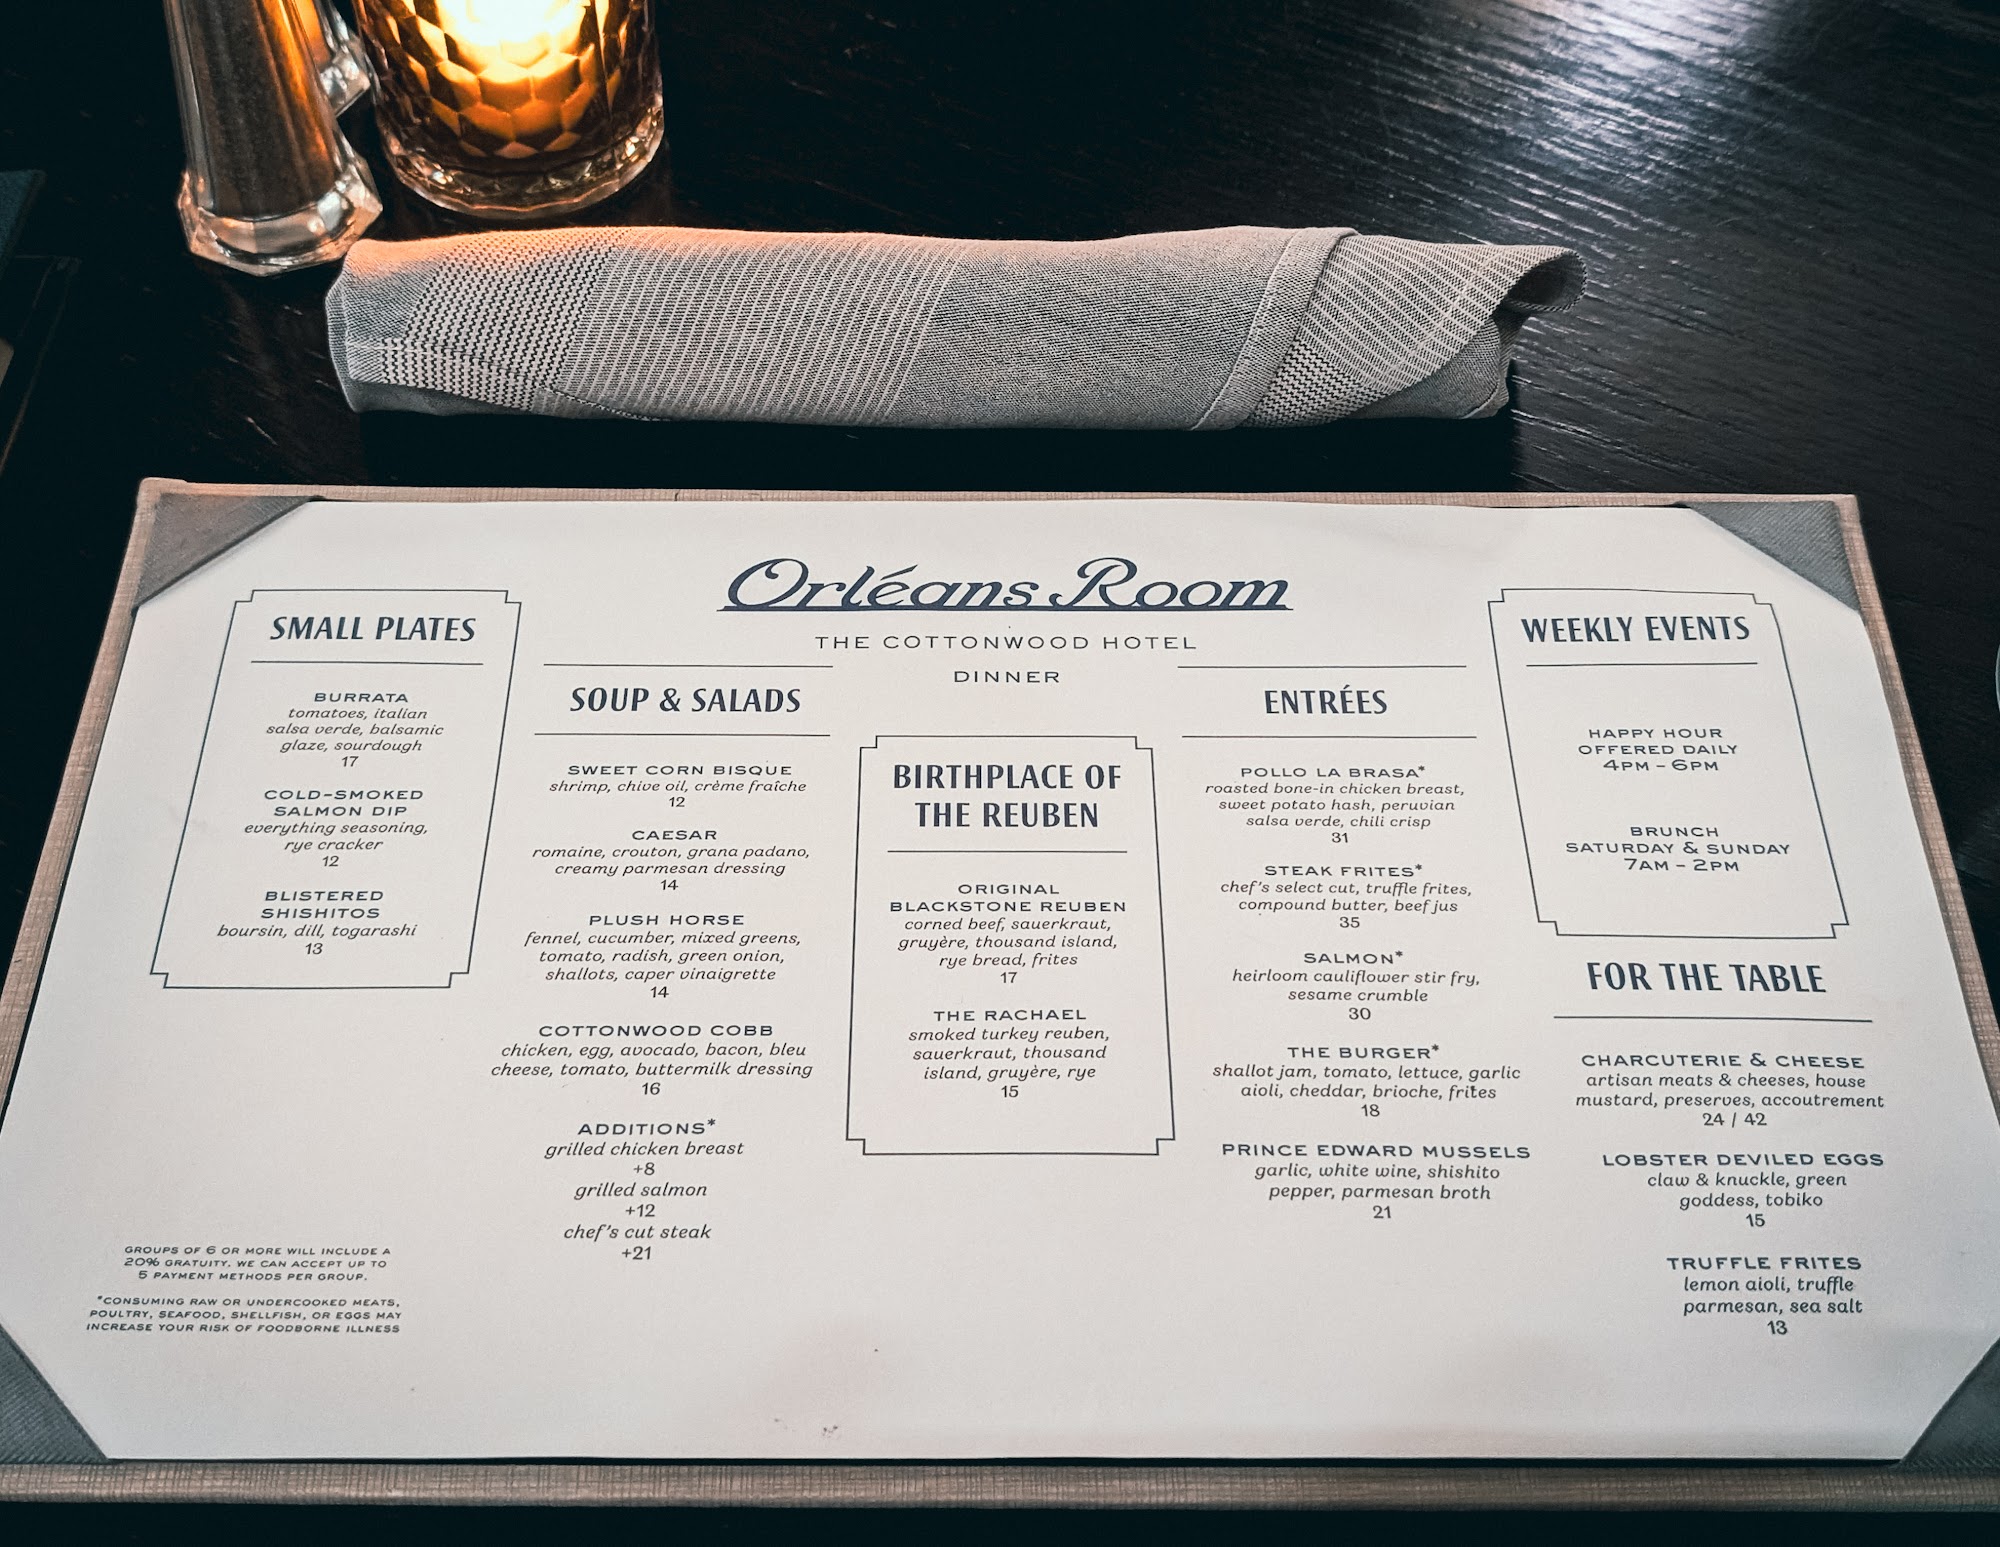 Orléans Room
THE COTTONWOOD HOTEL
DINNER
SMALL PLATES
BURRATA
tomatoes, italian
salsa verde, balsamic
glaze, sourdough
17
COLD-SMOKED
SALMON DIP
everything seasoning,
rye cracker
12
BLISTERED
SHISHITOS
boursin, dill, togarashi
13
GROUPS OF 6 OR MORE WILL INCLUDE A
20% GRATUITY. WE CAN ACCEPT UP TO
5 PAYMENT METHODS PER GROUP.
*CONSUMING RAW OR UNDERCOOKED MEATS,
POULTRY, SEAFOOD, SHELLFISH, OR EGGS MAY
INCREASE YOUR RISK OF FOODBORNE ILLNESS
SOUP & SALADS
SWEET CORN BISQUE
shrimp, chive oil, crème fraîche
12
CAESAR
romaine, crouton, grana padano,
creamy parmesan dressing
14
PLUSH HORSE
fennel, cucumber, mixed greens,
tomato, radish, green onion,
shallots, caper vinaigrette
14
COTTONWOOD COBB
chicken, egg, avocado, bacon, bleu
cheese, tomato, buttermilk dressing
16
ADDITIONS*
grilled chicken breast
+8
grilled salmon
+12
chef's cut steak
+21
BIRTHPLACE OF
THE REUBEN
ORIGINAL
BLACKSTONE REUBEN
corned beef, sauerkraut,
gruyère, thousand island,
rye bread, frites
17
THE RACHAEL
smoked turkey reuben,
sauerkraut, thousand
island, gruyère, rye
15
ENTRÉES
POLLO LA BRASA*
roasted bone-in chicken breast,
sweet potato hash, peruvian
salsa verde, chili crisp
31
STEAK FRITES*
chef's select cut, truffle frites,
compound butter, beef jus
35
SALMON*
heirloom cauliflower stir fry,
sesame crumble
30
THE BURGER*
shallot jam, tomato, lettuce, garlic
aioli, cheddar, brioche, frites
18
PRINCE EDWARD MUSSELS
garlic, white wine, shishito
pepper, parmesan broth
21
WEEKLY EVENTS
HAPPY HOUR
OFFERED DAILY
4PM – 6PM
BRUNCH
SATURDAY & SUNDAY
7AM – 2PM
FOR THE TABLE
CHARCUTERIE & CHEESE
artisan meats & cheeses, house
mustard, preserves, accoutrement
24 / 42
LOBSTER DEVILED EGGS
claw & knuckle, green
goddess, tobiko
15
TRUFFLE FRITES
lemon aioli, truffle
parmesan, sea salt
13